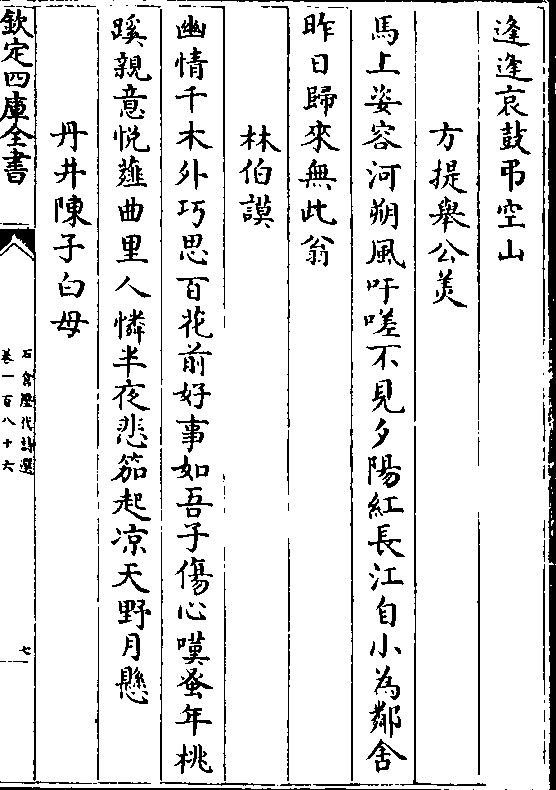 逢逢哀鼓弔空山
方提舉公美
馬上姿容河朔風吁嗟不見夕陽紅長江自小為鄰舍
昨日歸來無此翁
林伯謨
幽情千木外巧思百花前好事如吾子傷心嘆蚤年桃
蹊親意悦薤曲里人憐半夜悲笳起凉天野月懸
丹井陳子白母
欽定四庫全書
石倉歷代詩選
卷一百八十六
七